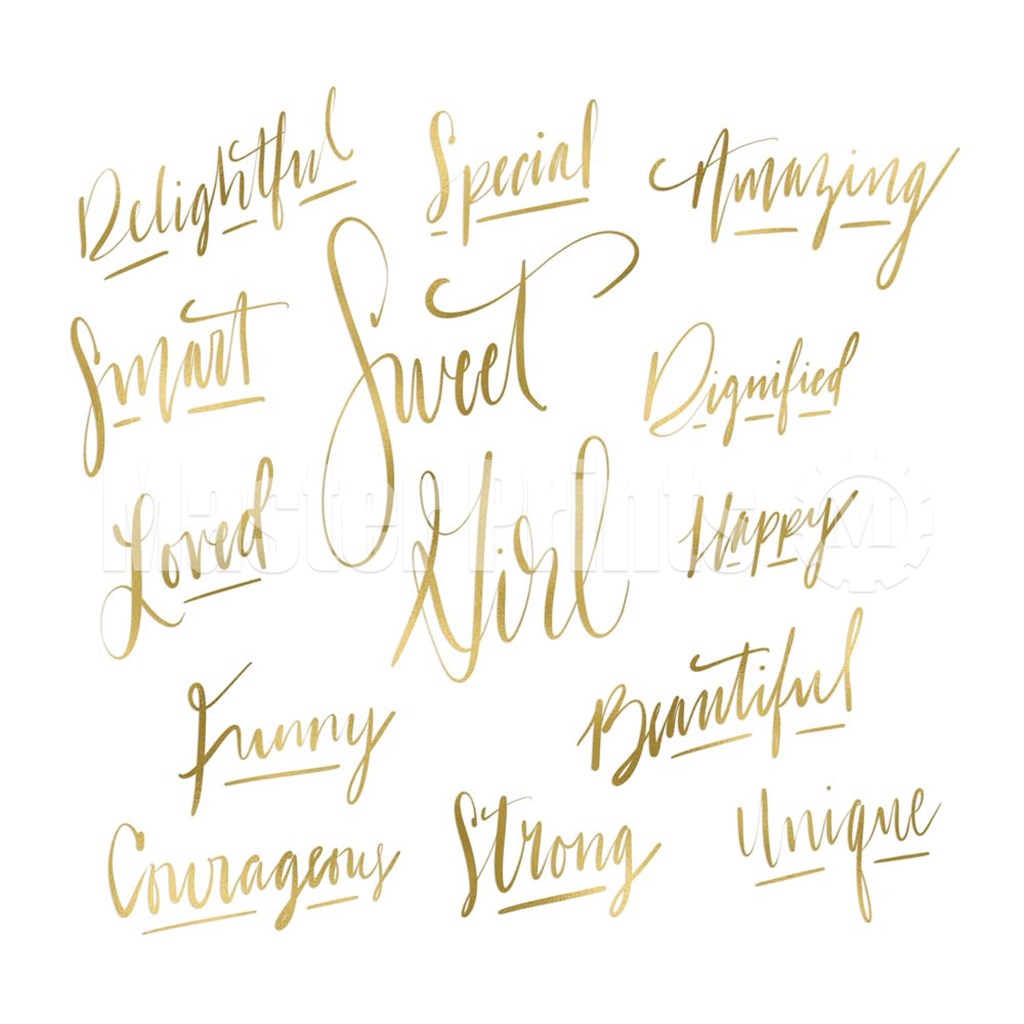 Delightful
Special
Amazing
Smart
Sweet
Dignified
Loved
Girl
Happy
Master Prints M
Funny
Beautiful
Courageous
Strong
Unique